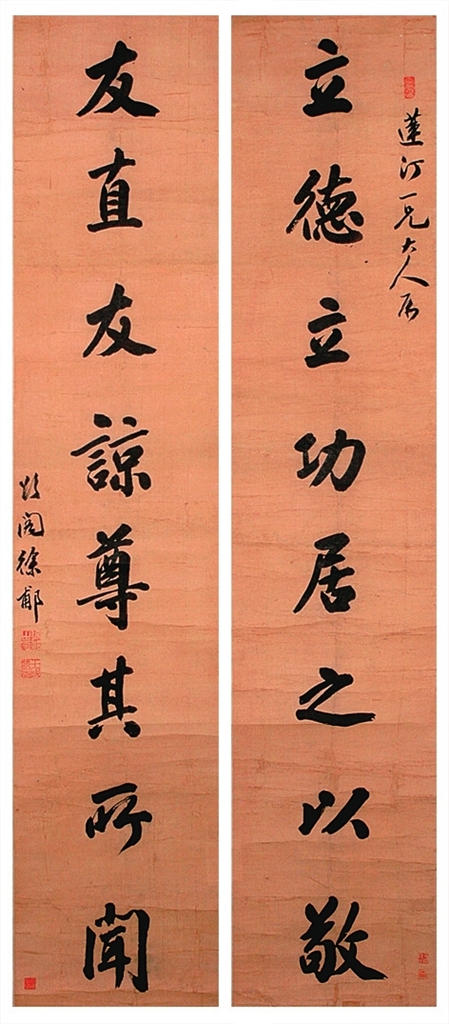 蓮汀一兄大人属
立德立功居之以敬
友直友諒尊其所聞
閣徐郙